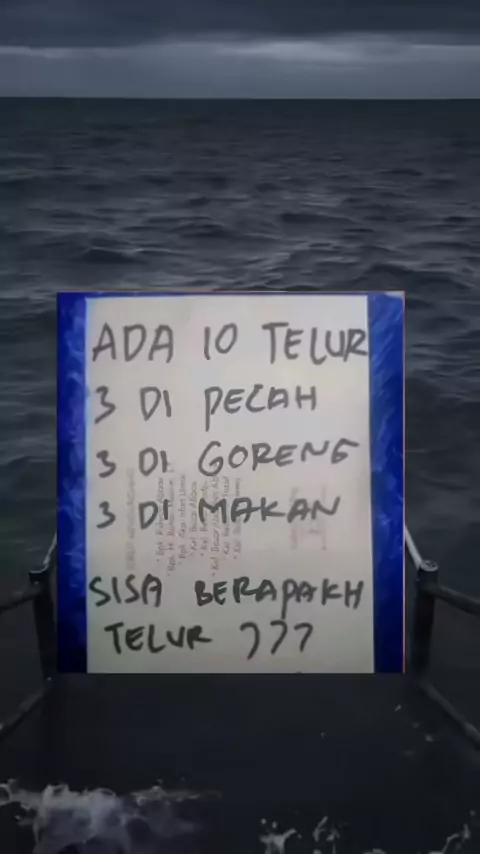 ADA 10 TELUR
3 DI PECAH
3 DI GORENG
3 DI MAKAN
SISA BERAPAKH
TELUR ???